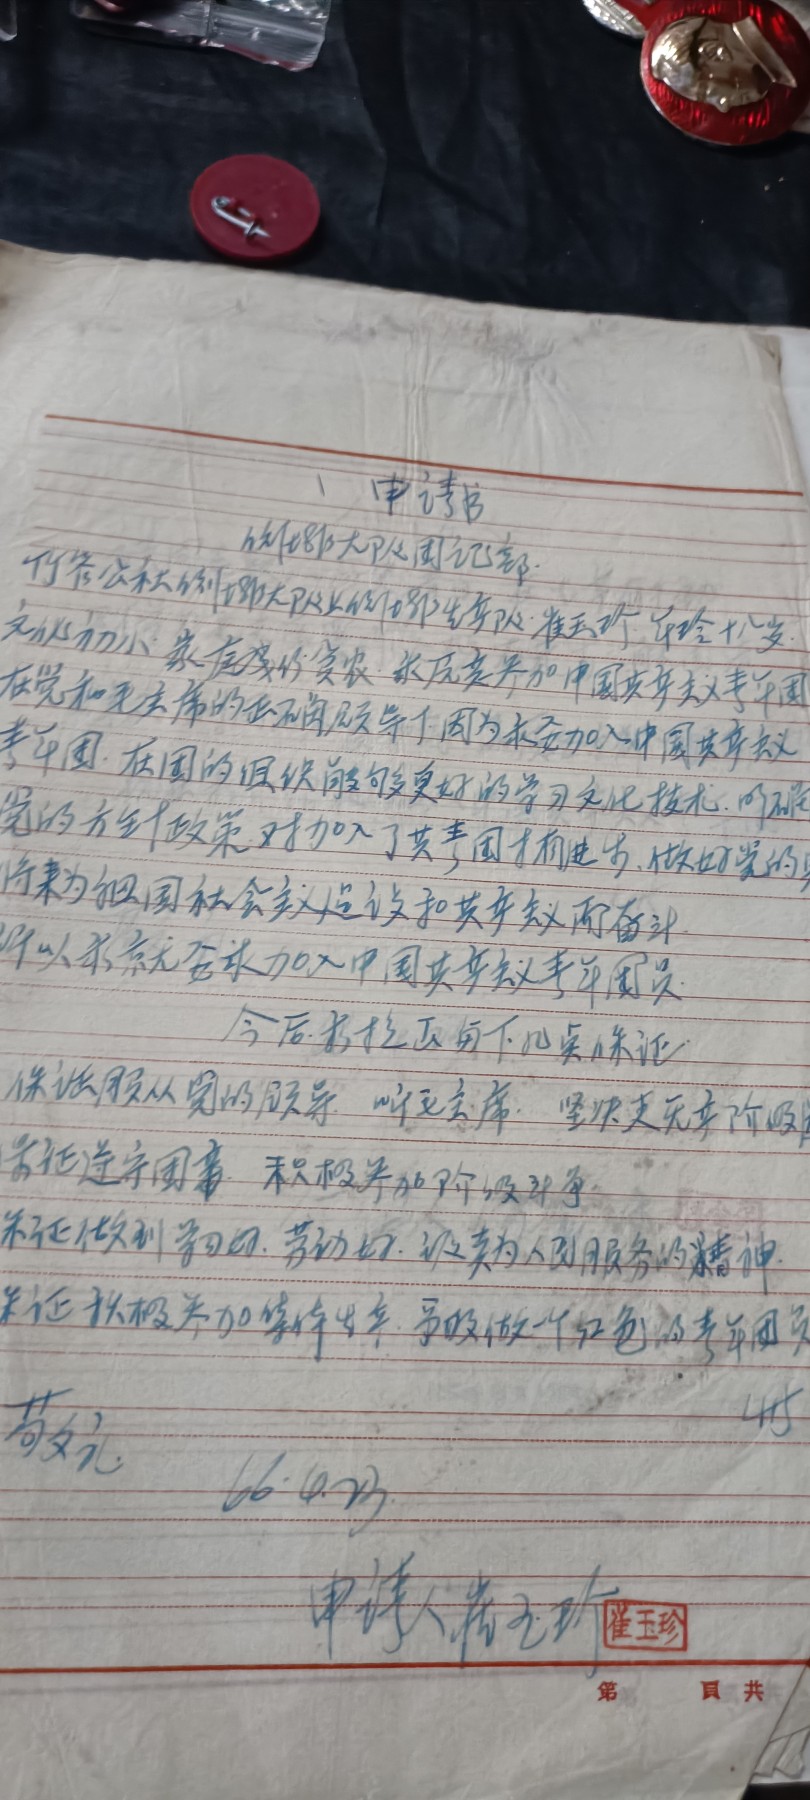 申请书
大队团记部.
公社 大队 生产队 崔玉珍 年玲十八岁.
文化初小. 家庭成份贫农. 我愿意参加中国共产主义青年团
在党和毛主席的正确领导下.因为我要加入中国共产主义
青年团. 在团的组织能够更好的学习文化技术. 明确
党的方针政策 对加入了共青团才有进步、做好党的
将来为祖国社会主义建设和共产主义而奋斗.
所以我 要求加入中国共产主义青年团员.
今后.我 下几点保证.
保证服从党的领导. 听毛主席. 坚决走无产阶级
保证遵守团章. 积极参加阶级斗争.
保证做到学习好. 劳动好. 认真为人民服务的精神.
保证积极参加集体生产. 争取做一个红色的青年团员
敬礼
66.4.23.
申请人崔玉珍
崔玉珍
第 頁 共